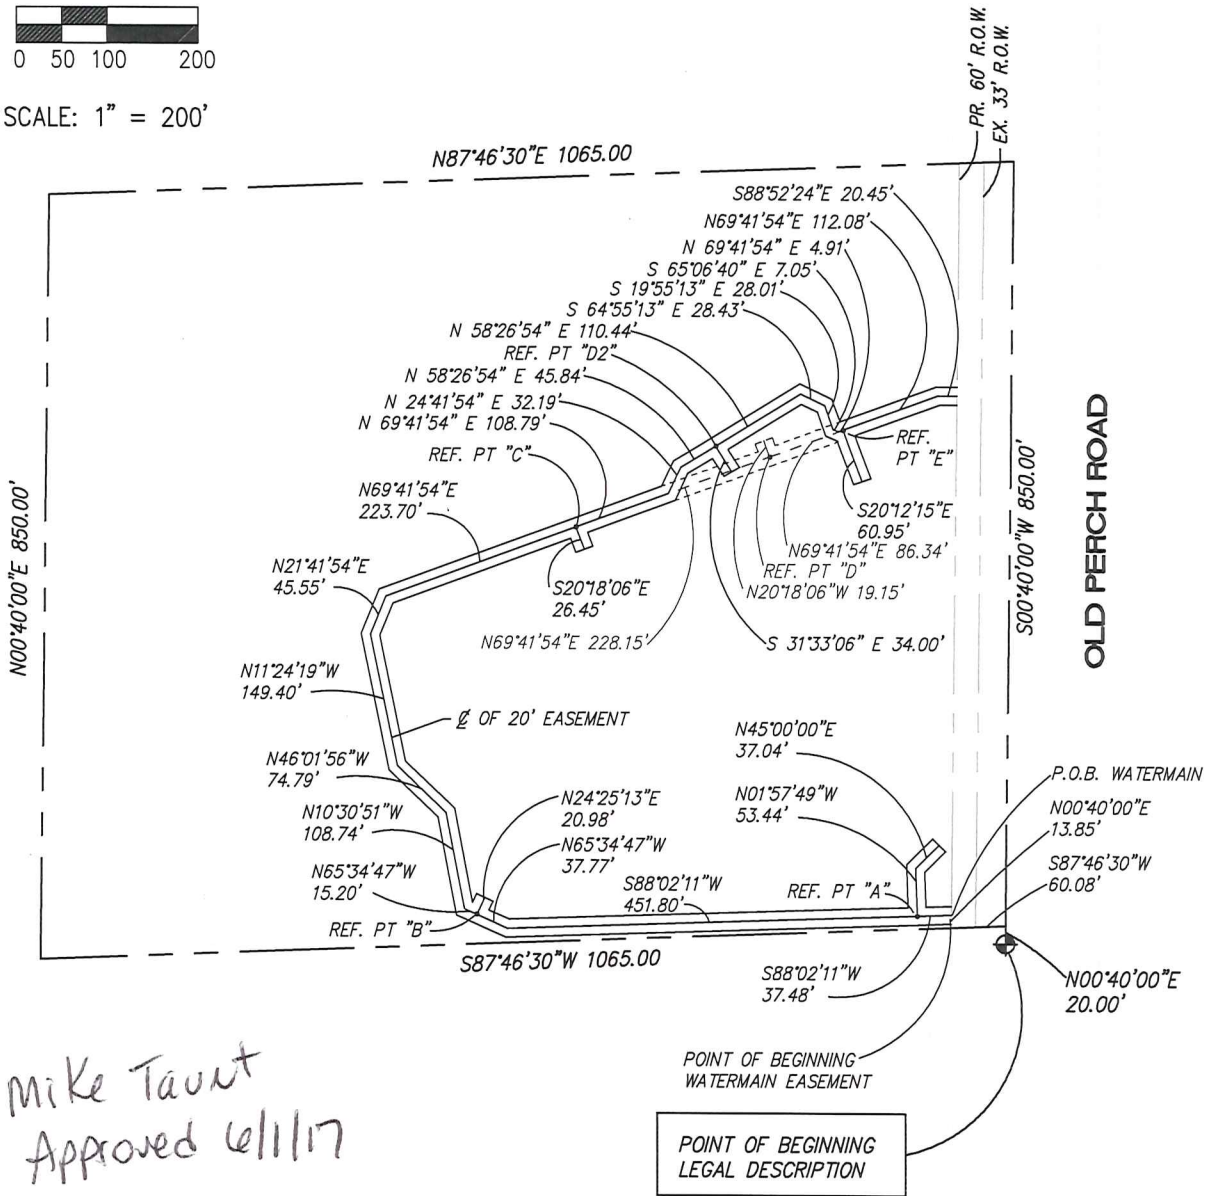 0 50 100 200
SCALE: 1" = 200'
PR. 60' R.O.W.
EX. 33' R.O.W.
N87°46'30"E 1065.00
S88°52'24"E 20.45'
N69°41'54"E 112.08'
N 69°41'54" E 4.91'
S 65°06'40" E 7.05'
S 19°55'13" E 28.01'
S 64°55'13" E 28.43'
N 58°26'54" E 110.44'
REF. PT "D2"
N 58°26'54" E 45.84'
N 24°41'54" E 32.19'
N 69°41'54" E 108.79'
REF. PT "C"
N69°41'54"E
223.70'
REF.
PT "E"
S20°12'15"E
60.95'
N69°41'54"E 86.34'
REF. PT "D"
N20°18'06"W 19.15'
S20°18'06"E
26.45'
N69°41'54"E 228.15'
S 31°33'06" E 34.00'
N21°41'54"E
45.55'
N00°40'00"E 850.00'
S00°40'00"W 850.00'
OLD PERCH ROAD
N11°24'19"W
149.40'
℄ OF 20' EASEMENT
N46°01'56"W
74.79'
N10°30'51"W
108.74'
N65°34'47"W
15.20'
REF. PT "B"
N24°25'13"E
20.98'
N65°34'47"W
37.77'
S88°02'11"W
451.80'
N45°00'00"E
37.04'
N01°57'49"W
53.44'
REF. PT "A"
P.O.B. WATERMAIN
N00°40'00"E
13.85'
S87°46'30"W
60.08'
S87°46'30"W 1065.00
S88°02'11"W
37.48'
N00°40'00"E
20.00'
POINT OF BEGINNING
WATERMAIN EASEMENT
POINT OF BEGINNING
LEGAL DESCRIPTION
Mike Taunt
Approved 6/1/17